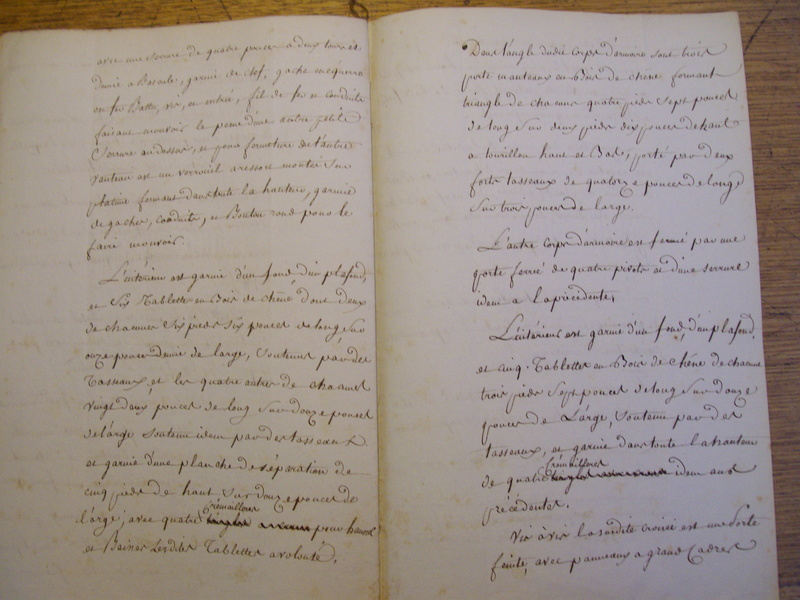 avec une serrure de quatre pouces a deux tours et
demie a Bascule, garnie de clef, gache en equerre
en fer Battu, vis, et entrée, fil de fer et conduits
faisant mouvoir le pene d'une autre petite
serrure au dessus, et pour fermeture de l'autre
vanteau est un verrouil a ressort monté sur
platine formant dans toute la hauteur, garnie
de gaches, conduits, et Bouton rond pour le
faire mouvoir.
L'intérieur est garnie d'un fond d'un plafond,
et six Tablettes en Bois de chêne dont deux
de chacunes six pieds six pouces de long sur
onze pouces demie de large, soutenues par des
Tasseaux, et les quatre autres de chacunes
vingt deux pouces de long sur douze pouces
de large soutenu idem par des tasseaux
et garnie d'une planche de séparation de
cinq pieds de haut sur douze pouces de
large, avec quatre Crémailleres pour hausser
et Baisser lesdites Tablettes a volonté.
Dans l'angle dudit corps d'armoire sont trois
porte manteaux en Bois de chene formant
triangle de chacuns quatre pieds sept pouces
de long sur deux pieds dix pouces de haut
a tourillon haut et Bas, porté par deux
forts tasseaux de quatorze pouces de long
sur trois pouces de large.
L'autre corps d'armoire est fermé par une
porte ferrée de quatre pivots et d'une serrure
idem a la précedente,
L'intérieur est garnie d'un fond, d'un plafond,
et cinq Tablettes en Bois de chêne de chacune
trois pieds sept pouces de long sur douze
pouces de Large, soutenu par des
tasseaux, et garnie dans toute la hauteur
de quatre Crémailleres idem aux
précédentes.
Vis à vis la susdite croisée est une Porte
feinte, avec panneaux a grand Cadres